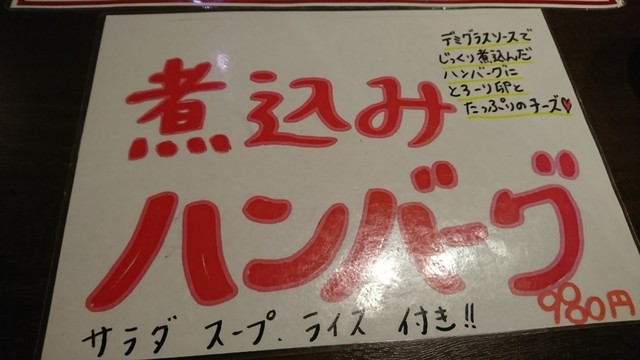 煮込み
デミグラスソースで
じっくり煮込んだ
ハンバーグに
とろーり卵と
たっぷりのチーズ♥
ハンバーグ
980円
サラダ スープ、ライス 付き!!